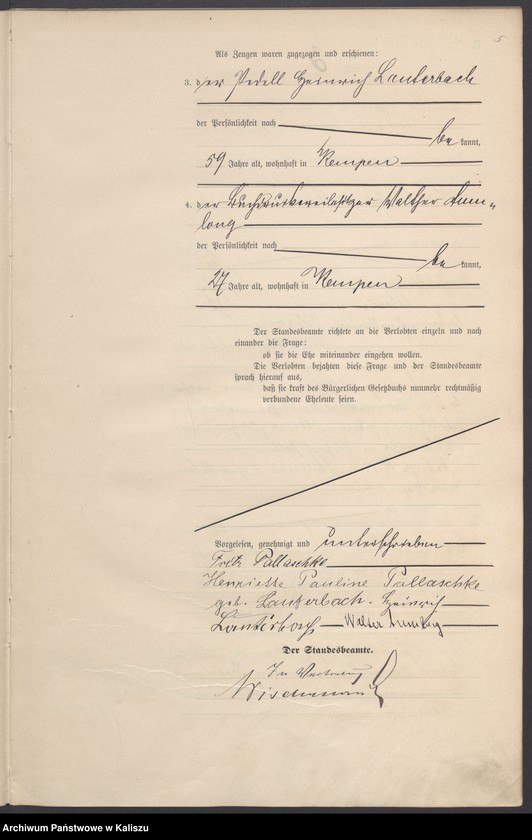 5
Als Zeugen waren zugezogen und erschienen:
3. der Pedell Heinrich Lauterbach
der Persönlichkeit nach
be kannt,
59 Jahre alt, wohnhaft in Kempen
4. der Buchdruckereibesitzer Walther
der Persönlichkeit nach
be kannt,
27 Jahre alt, wohnhaft in Kempen
Der Standesbeamte richtete an die Verlobten einzeln und nach
einander die Frage:
ob sie die Ehe miteinander eingehen wollen.
Die Verlobten bejahten diese Frage und der Standesbeamte
sprach hierauf aus,
daß sie kraft des Bürgerlichen Gesetzbuchs nunmehr rechtmäßig
verbundene Eheleute seien.
Vorgelesen, genehmigt und unterschrieben
Fritz Pallaschke
Henriette Pauline Pallaschke
geb. Lauterbach. Heinrich
Lauterbach Walter
Der Standesbeamte.
In Vertretung
Archiwum Państwowe w Kaliszu